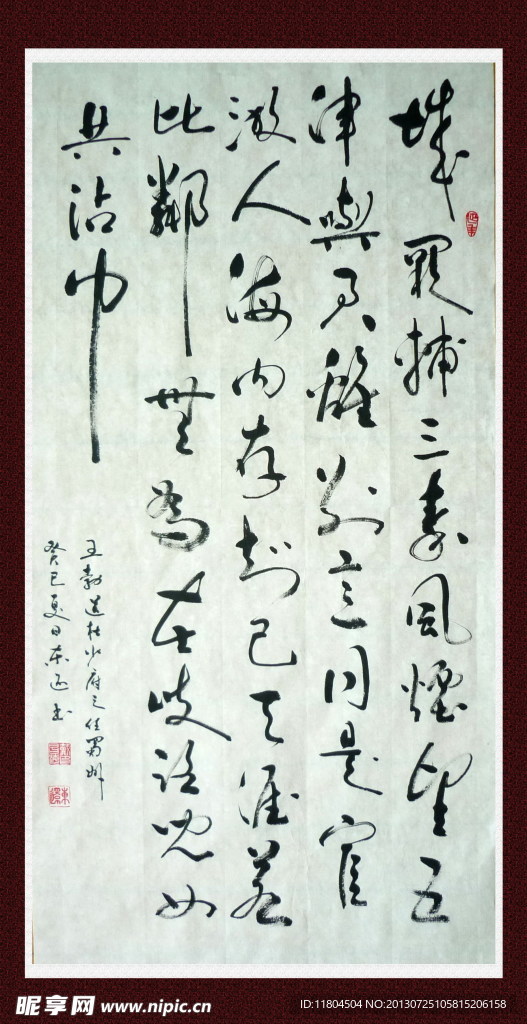 城闕輔三秦風煙望五
津與君離別意同是宦
游人海内存知己天涯若
比鄰無為在歧路兒女
共沾巾
王勃送杜少府之任蜀州
癸巳夏日
昵享网 www.nipic.cn
ID:11804504 NO:20130725105815206158